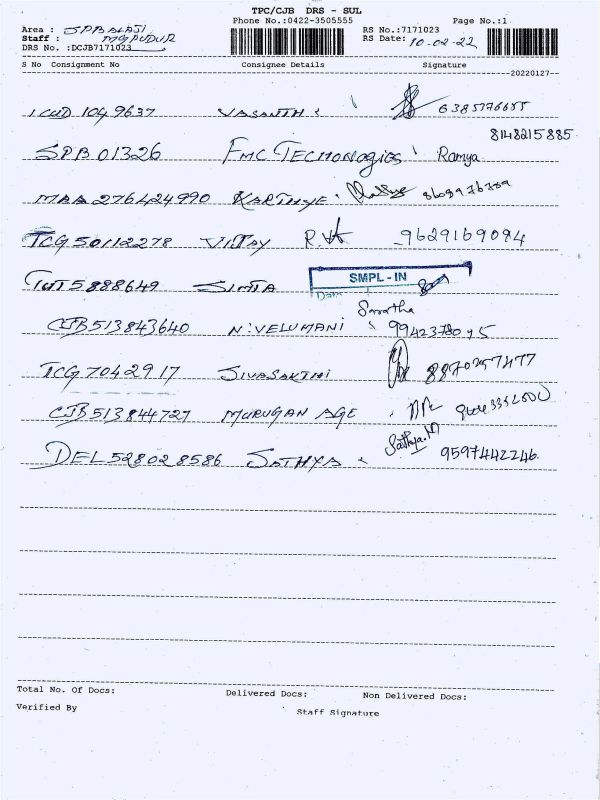 TPC/CJB DRS - SUL
Phone No.:0422-3505555 Page No.:1
Area : SPBALAJI RS No.:7171023
Staff : MGPUDUR RS Date: 10-02-22
DRS No. :DCJB7171023
S No Consignment No Consignee Details Signature
--20220127--
104 9637 VASANTH 6385776655
8148215885
SPB 01326 FMC TECHONOGIES Ramya
MAA 276424990 KARTHYE
TCG 50112278 VIJAY R.V 9629169094
5888649 SMPL-IN
CJB 513843640 N. VELUMANI
TCG 7042917 SIVASAKTHI
CJB 513844727 MURUGAN AGE
Sathya.M
DEL 528028586 SATHYA 9597442246
Total No. Of Docs: Delivered Docs: Non Delivered Docs:
Verified By Staff Signature